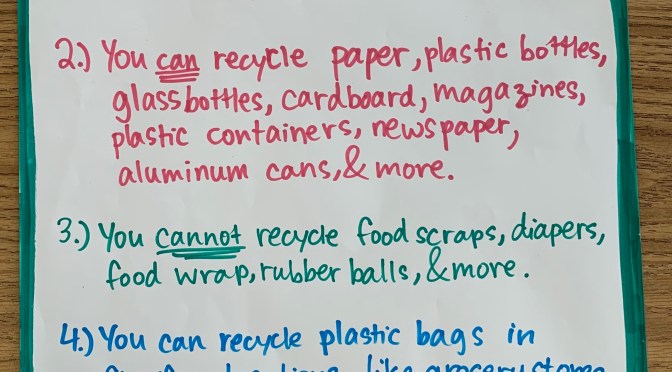 2.) You can recycle paper, plastic bottles,
glass bottles, cardboard, magazines,
plastic containers, newspaper,
aluminum cans, & more.
3.) You cannot recycle food scraps, diapers,
food wrap, rubber balls, & more.
4.) You can recycle plastic bags in
like grocery